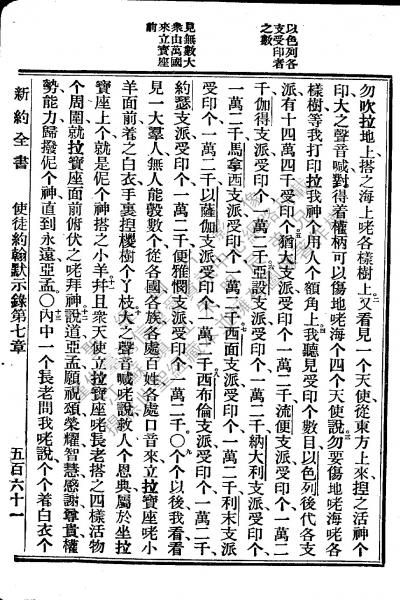 以色列各
支受印者
之數
見無數大
衆由萬國
來立寶座
前
勿吹拉地上搭之海上咾各樣樹上二又看見一个天使從東方上來揑之活神个
印大之聲音喊對得着權柄可以傷地咾海个四个天使說三勿要傷地咾海咾各
樣樹等我打印拉我神个用人个額角上四我聽見受印个數目以色列後代各支
派有十四萬四千受印个五猶大支派受印个一萬二千流便支派受印个一萬二
千伽得支派受印个一萬二千六亞設支派受印个一萬二千納大利支派受印个
一萬二千馬拿西支派受印个一萬二千七西面支派受印个一萬二千利未支派
受印个一萬二千以薩伽支派受印个一萬二千八西布倫支派受印个一萬二千
約瑟支派受印个一萬二千便雅憫支派受印个一萬二千〇九个个以後我看看
見一大羣人無人能彀數个從各國各族各處百姓各處口音來立拉寶座咾小
羊面前着之白衣手裏揑椶樹个丫枝十大之聲音喊咾說救人个恩典屬於坐拉
寶座上个就是伲个神搭之小羊十一幷且衆天使立拉寶座咾長老搭之四樣活物
个周圍就拉寶座面前俯伏之咾拜神十二說道亞孟願祝頌榮耀智慧感謝尊貴權
勢能力歸撥伲个神直到永遠亞孟〇十三內中一个長老問我咾說个个着白衣个
新約全書 使徒約翰默示錄第七章 五百六十一